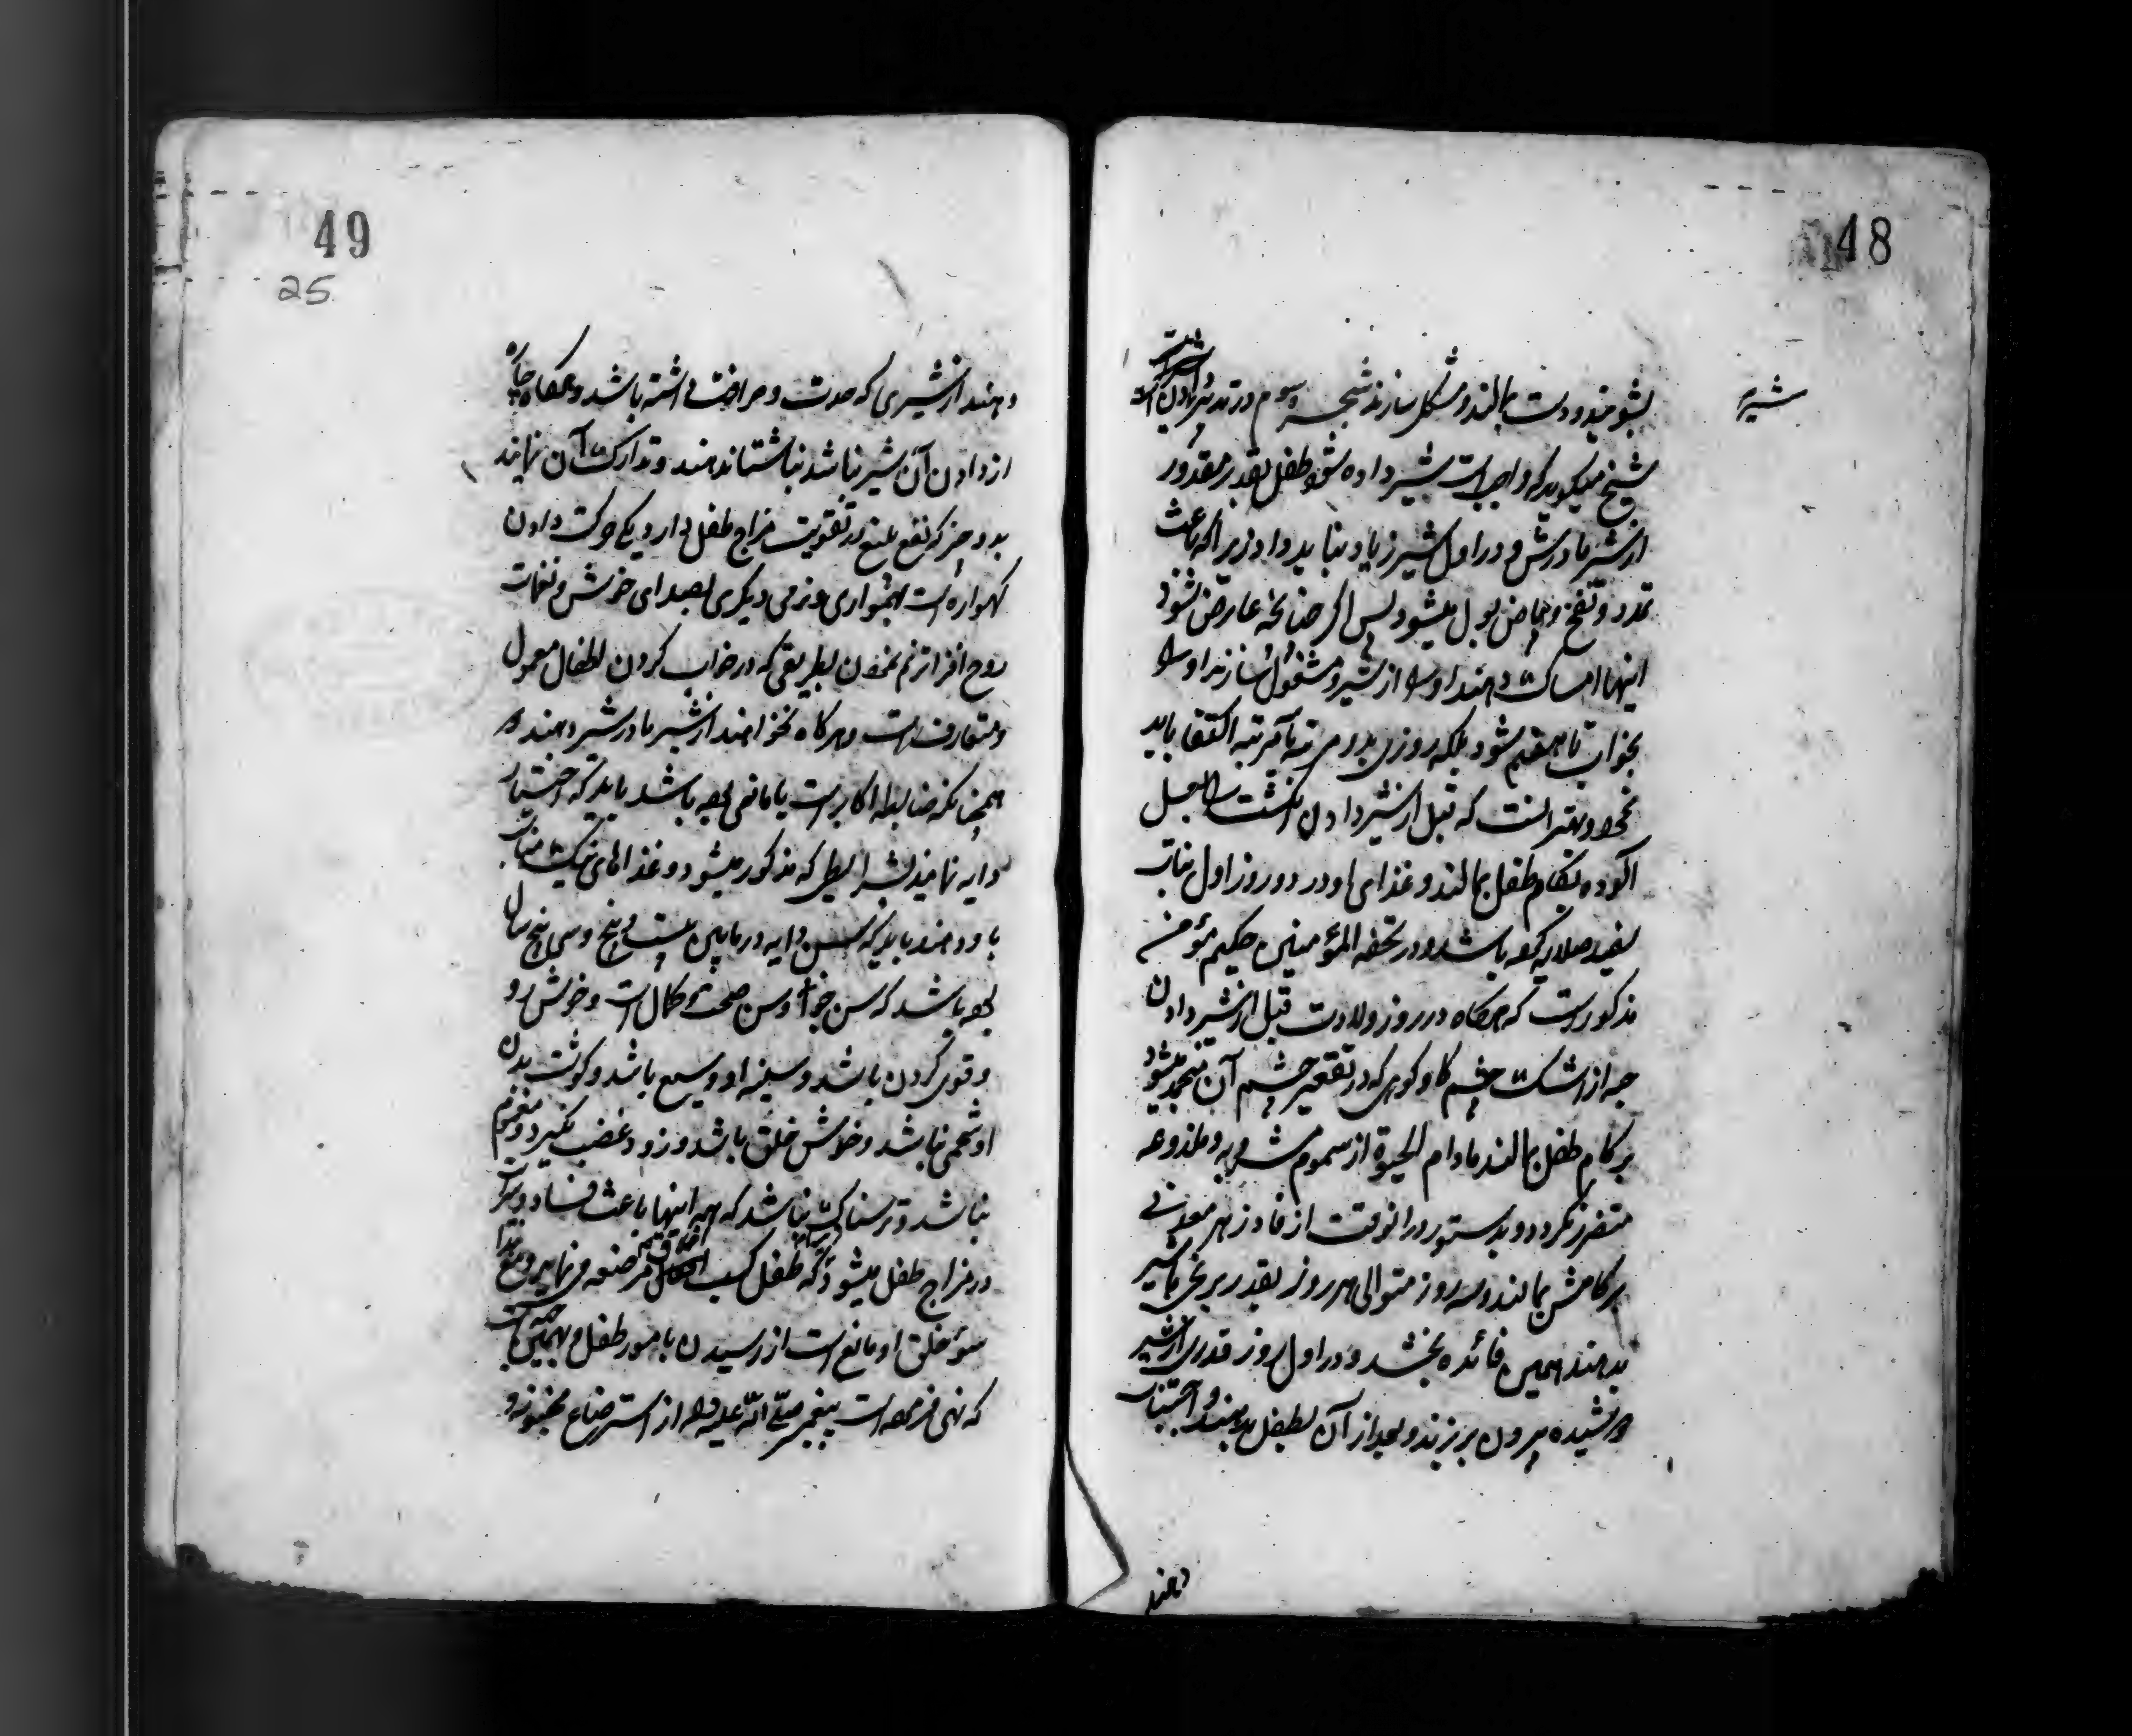 48
شیر
بشویند و دست بمالند و مشکل سازند شجره سوم در تدبیر شیر دادن است
شیخ میگوید که واجبست شیر داده شود طفل بقدر مقدور
از شیر مادرش و در اول شیر زیاد نباید داد زیرا که باعث
تمدد و نفخ و بیاض بول میشود پس اگر چنانچه عارض شود
اینها امساک دهند او را از شیر و مشغول سازند او را
بخواب تا هضم شود بلکه روزی بدو مرتبه تا سه مرتبه اکتفا باید
نمود و بهتر آنست که قبل از شیر دادن انگشت را بعسل
آلوده بکام طفل بمالند و غذای او در دو روز اول نبات
سفید صلایه کرده باشد و در تحفه المؤمنین حکیم مؤمن
مذکورست که هرگاه در روز ولادت قبل از شیر دادن
حبه از اشک چشم گاو کوهی که در تقعیر چشم آن منجمد میشود
بر کام طفل بمالند مادام الحیوة از سموم مشروبه و ملذوعه
متضرر نگردد و بدستور در انوقت از فادزهر معدنی
بر کامش بمالند و سه روز متوالی هر روز بقدر برنجی با شیر
بدهند همین فائده بخشد و در اول روز قدری از شیر
دوشیده بیرون بریزند و بعد از آن بطفل بدهند و اجتناب
نمایند
49
25
دهند از شیری که حدت و حرافت داشته باشد و هرگاه چاره
از دادن آن شیر نباشد بناشتا ندهند و تدارک آن نمایند
بدو چیز که نفع بلیغ در تقویت مزاج طفل دارد یکی حرکت دادن
گهواره است بهمواری و نرمی دیگری بصدای خوش و نغمات
روح افزا ترنم نمودن بطریقی که در خواب کردن اطفال معمول
و متعارف است و هرگاه نخواهند از شیر مادر شیر دهند
همچنانکه ضابطه اکابر است یا مانعی بوده باشد باید که اختیار
دایه نمایند بشرایطی که مذکور میشود و غذاهای نیک مناسب
باو دهند باید که سن دایه در مابین بیست و پنج و سی پنج سال
بوده باشد که سن جوانی و سن صحت و کمال است و خوش رو
و قوی گردن باشد و سینه او وسیع باشد و گوشت بدن
او شحمی نباشد و خوش خلق باشد و زود غضب نگیرد و مغموم
نباشد و ترسناک نباشد که همه اینها باعث فساد و سرایت
در مزاج طفل میشود که طفل کسب اخلاق از مرضعه می نماید و مع هذا
سوء خلق او مانع است از رسیدن بامور طفل و بهمین جهت است
که نهی فرموده است پیغمبر صلی الله علیه و اله از استرضاع مجنونه و